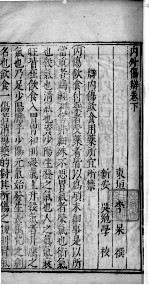 內外傷辯卷下
東垣 李杲 撰
新安 吳勉學 校
辯內傷飲食用藥所宜所禁
內傷飲食付藥者受藥者皆以為瑣末細事是以所
當重者為輕利害非細殊不思胃氣者榮氣也衛氣
也穀氣也清氣也資少陽生發之氣也人之真氣衰
旺皆在飲食入胃胃和則穀氣上升穀氣者升騰之
氣也乃足少陽膽手少陽元氣始發生長萬化之別
名也飲食一傷若消導藥的對其所傷之物